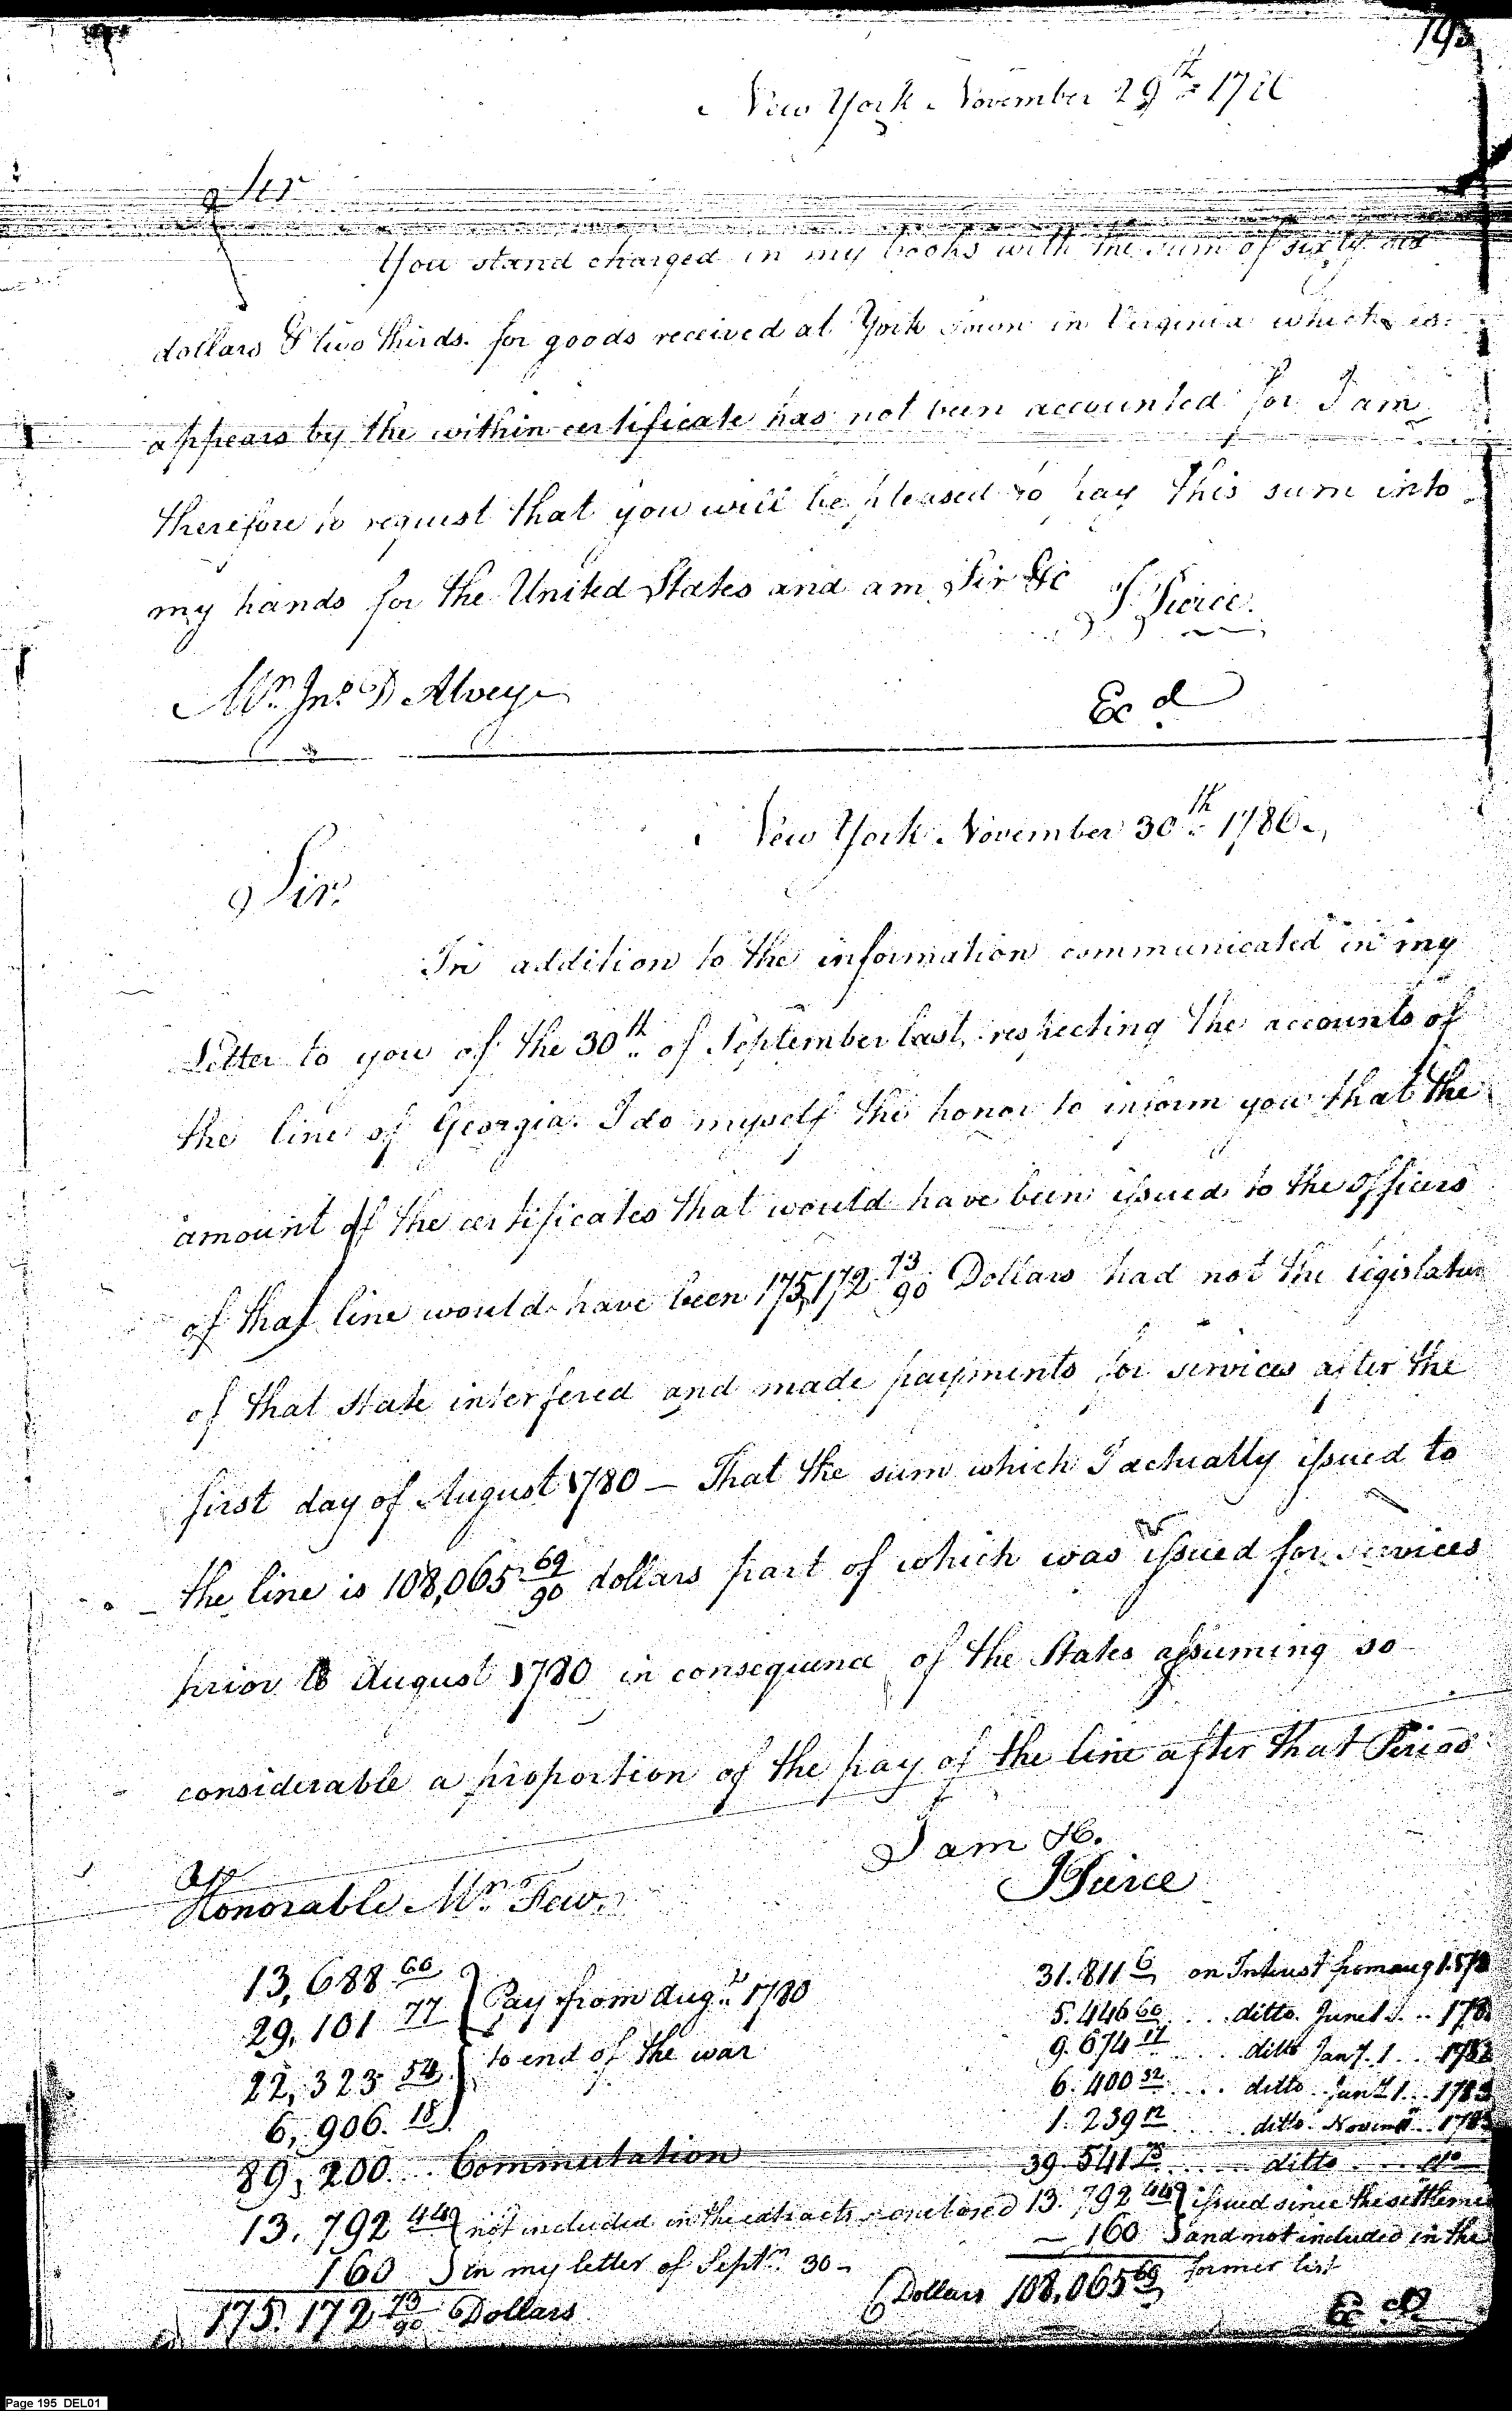 193
New York November 29th 1786
Sir
You stand charged in my books with the sum of sixty six
dollars & two thirds for goods received at York Town in Virginia which as
appears by the within certificate has not been accounted for I am
therefore to request that you will be pleased to pay this sum into
my hands for the United States and am Sir &c J Pierce.
Mr. Jno. D Alvey
Exd.
New York November 30th 1786.
Sir.
In addition to the information communicated in my
Letter to you of the 30th of September last, respecting the accounts of
the line of Georgia. I do myself the honor to inform you that the
amount of the certificates that would have been issued to the officers
of that line would have been 175,172 73/90 Dollars had not the legislature
of that state interfered and made payments for services after the
first day of August 1780 — That the sum which I actually issued to
the line is 108,065 69/90 dollars part of which was issued for services
prior to August 1780 in consequence of the States assuming so
considerable a proportion of the pay of the line after that Period
I am &c.
JPierce
Honorable Mr. Few.
13,688 60 } Pay from Augt. 1780
29,101 77
22,323 54 } to end of the war
6,906. 18
89,200 .. Commutation
13,792 44 { not included in the extracts enclosed
160 } in my letter of Septr. 30 -
175.172 73/90 Dollars
31.811 6 on Interest from aug 1. 178
5.446 60 .... ditto. June 1 ... 178
9.674 17 .... ditto Jany. 1 .. 1782
6.400 32 .... ditto Jany 1 .. 1783
1.239 12 .... ditto Novemr .. 1783
39.541 78 .... ditto .... do
13.792 44 { issued since the settlement
160 } and not included in the
former list
Dollars 108,065 69
Exd
Page 195 DEL01